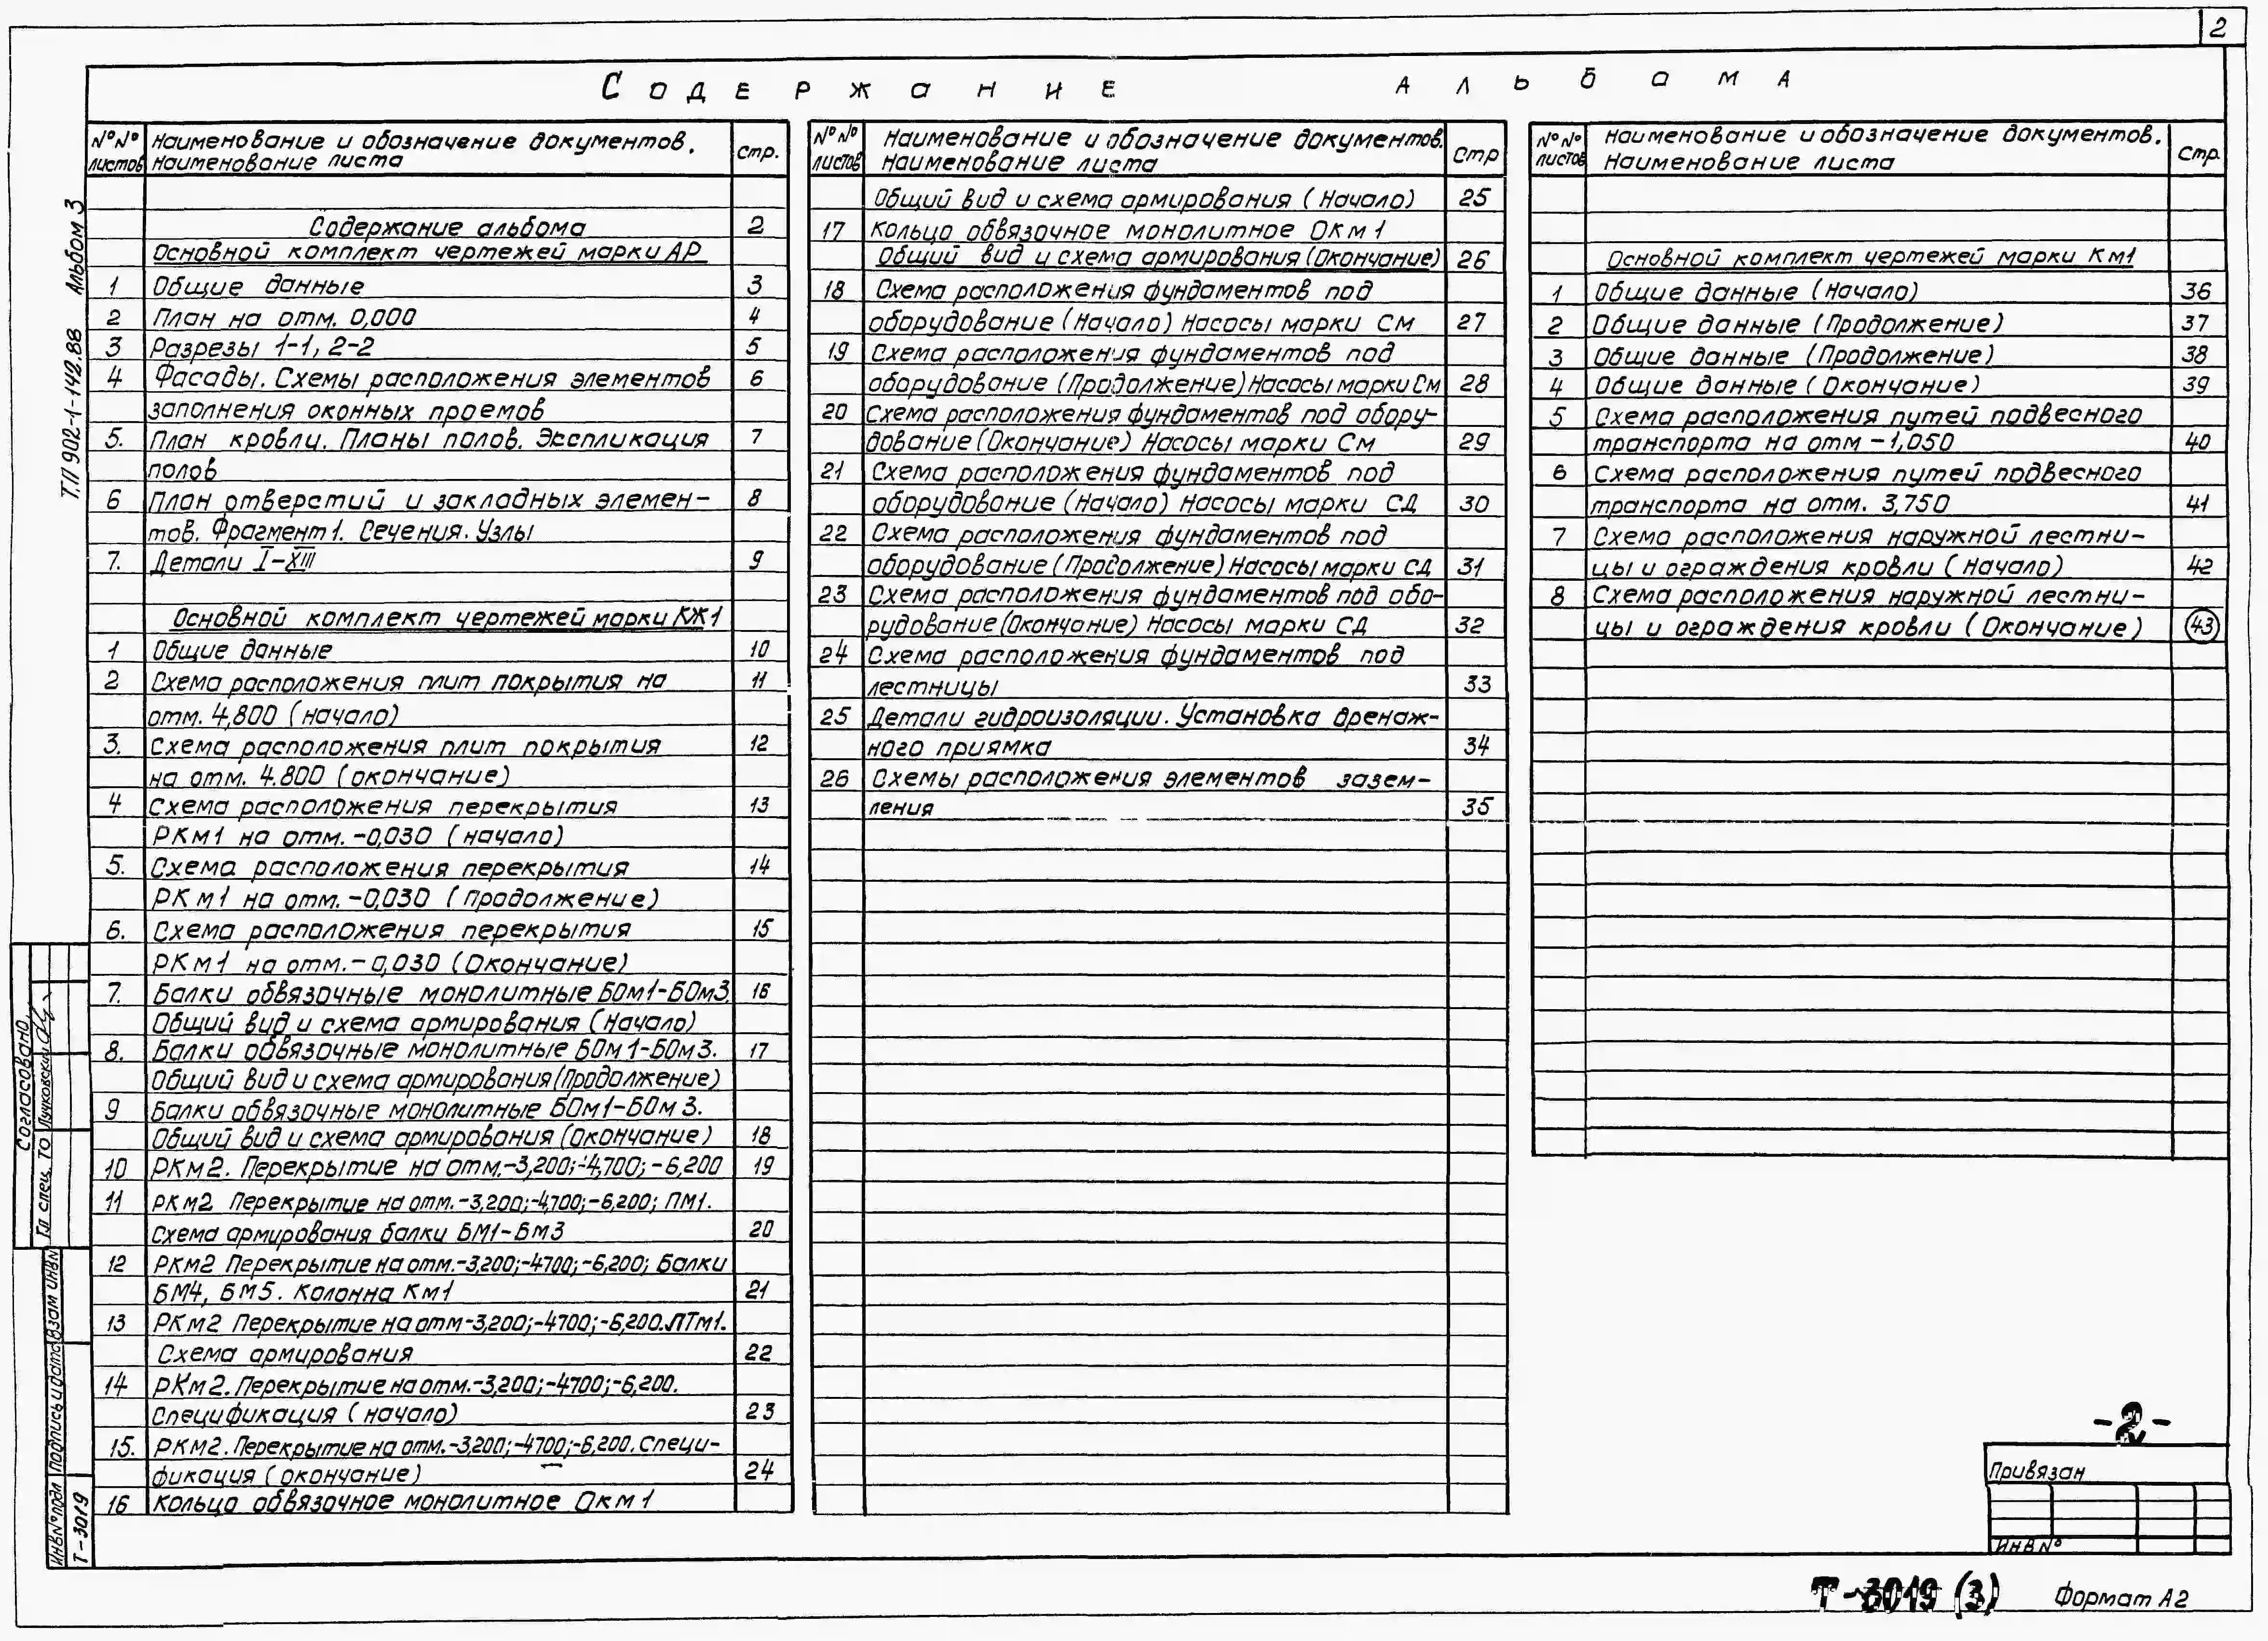 2
Содержание альбома
№№ листов Наименование и обозначение документов. Наименование листа стр.
Содержание альбома 2
Основной комплект чертежей марки АР
1 Общие данные 3
2 План на отм. 0,000 4
3 Разрезы 1-1, 2-2 5
4 Фасады. Схемы расположения элементов 6
заполнения оконных проемов
5. План кровли. Планы полов. Экспликация 7
полов
6 План отверстий и закладных элемен- 8
тов. Фрагмент 1. Сечения. Узлы
7. Детали I-XIII 9
Основной комплект чертежей марки КЖ1
1 Общие данные 10
2 Схема расположения плит покрытия на 11
отм. 4,800 (начало)
3. Схема расположения плит покрытия 12
на отм. 4.800 (окончание)
4 Схема расположения перекрытия 13
РКм1 на отм. -0,030 (начало)
5. Схема расположения перекрытия 14
РКм1 на отм. -0,030 (Продолжение)
6. Схема расположения перекрытия 15
РКм1 на отм. -0,030 (Окончание)
7. Балки обвязочные монолитные БОм1-БОм3. 16
Общий вид и схема армирования (Начало)
8. Балки обвязочные монолитные БОм1-БОм3. 17
Общий вид и схема армирования (Продолжение)
9 Балки обвязочные монолитные БОм1-БОм3.
Общий вид и схема армирования (Окончание) 18
10 РКм2. Перекрытие на отм.-3,200;-4,700;-6,200 19
11 РКм2 Перекрытие на отм.-3,200;-4,700;-6,200; ПМ1.
Схема армирования балки БМ1-БМ3 20
12 РКм2 Перекрытие на отм.-3,200;-4700;-6,200; Балки
БМ4, БМ5. Колонна Км1 21
13 РКм2 Перекрытие на отм-3,200;-4700;-6,200.ЛТм1.
Схема армирования 22
14 РКм2. Перекрытие на отм.-3,200;-4700;-6,200.
Спецификация (начало) 23
15. РКм2. Перекрытие на отм.-3,200;-4700;-6,200. Специ-
фикация (окончание) 24
16 Кольцо обвязочное монолитное Окм1
№№ листов Наименование и обозначение документов. Наименование листа Стр
Общий вид и схема армирования (Начало) 25
17 Кольцо обвязочное монолитное Окм1
Общий вид и схема армирования (Окончание) 26
18 Схема расположения фундаментов под
оборудование (Начало) Насосы марки См 27
19 Схема расположения фундаментов под
оборудование (Продолжение) Насосы марки См 28
20 Схема расположения фундаментов под обору-
дование (Окончание) Насосы марки См 29
21 Схема расположения фундаментов под
оборудование (Начало) Насосы марки СД 30
22 Схема расположения фундаментов под
оборудование (Продолжение) Насосы марки СД 31
23 Схема расположения фундаментов под обо-
рудование (Окончание) Насосы марки СД 32
24 Схема расположения фундаментов под
лестницы 33
25 Детали гидроизоляции. Установка дренаж-
ного приямка 34
26 Схемы расположения элементов зазем-
ления 35
№№ листов Наименование и обозначение документов. Наименование листа Стр.
Основной комплект чертежей марки Км1
1 Общие данные (Начало) 36
2 Общие данные (Продолжение) 37
3 Общие данные (Продолжение) 38
4 Общие данные (Окончание) 39
5 Схема расположения путей подвесного
транспорта на отм -1,050 40
6 Схема расположения путей подвесного
транспорта на отм. 3,750 41
7 Схема расположения наружной лестни-
цы и ограждения кровли (Начало) 42
8 Схема расположения наружной лестни-
цы и ограждения кровли (Окончание) 43
Т.П 902-1-142.88 Альбом 3
Согласовано
Гл спец. ТО Лучковский
Инв№подл Подпись и дата Взам инв№
Т-3019
-2-
Привязан
Инв №
Т-3019 (3)
Формат А2